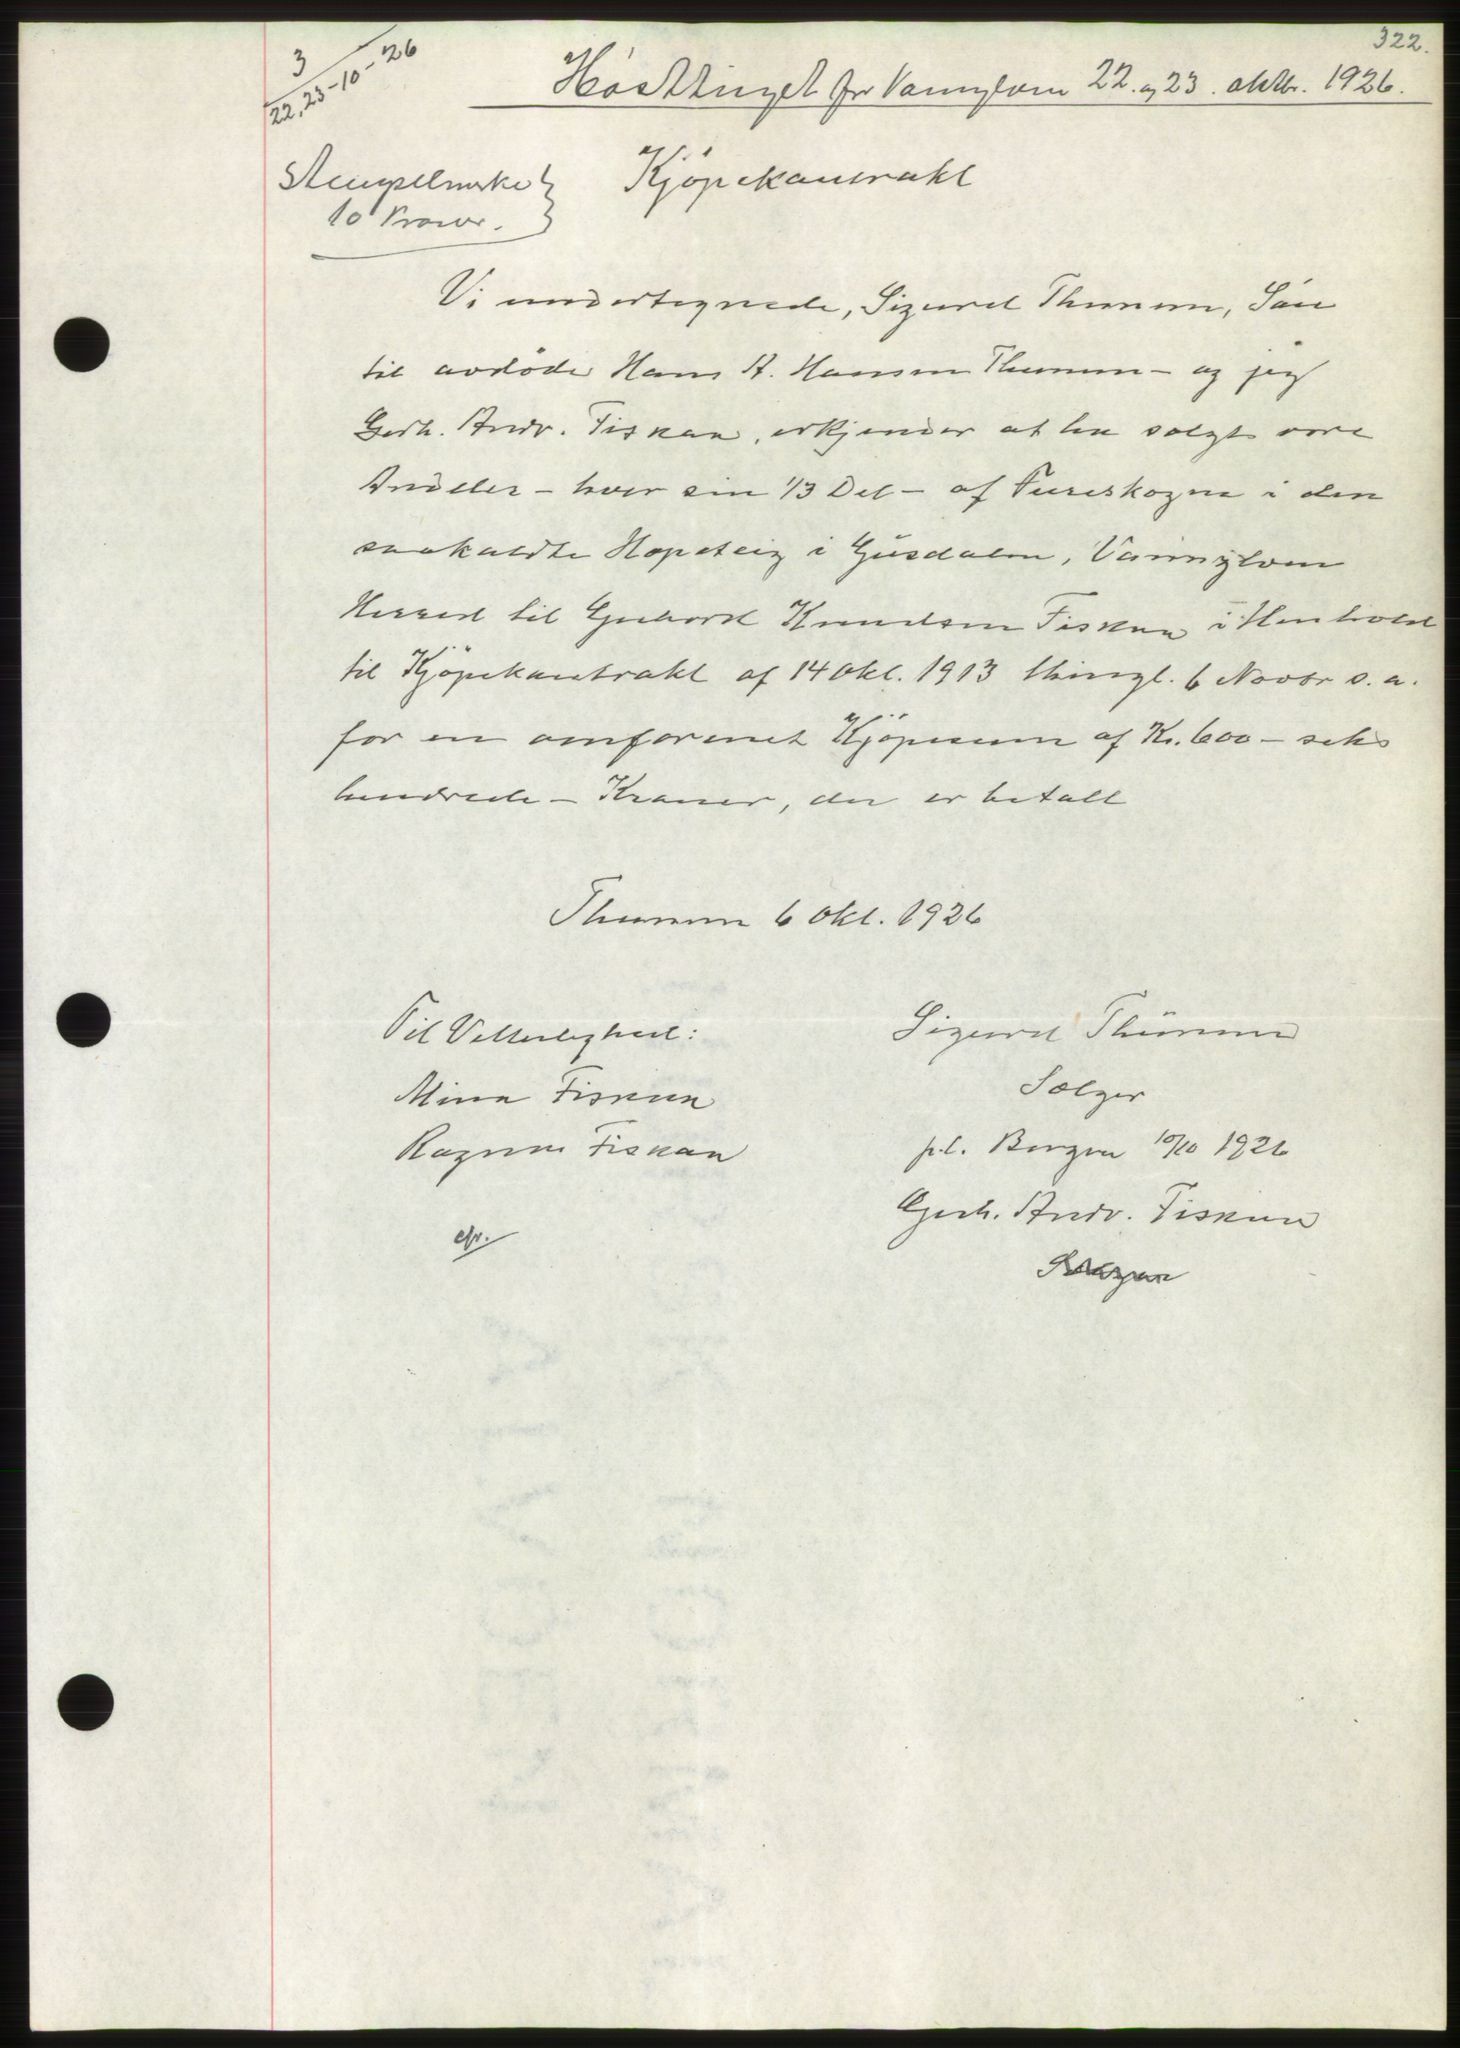 322.
3
22, 23-10-26
Hösttinget for Vannylven 22. og 23. oktbr. 1926.
Stempelmerke
10 Kroner.
Kjöpekontrakt
Vi undertegnede, Sigurd Thunem, Sön
til avdöde Hans A. Hansen Thunem - og jeg
Gerh. Andr. Fiskaa, erkjender at ha solgt vore
Andeler - hver sin 1/3 Del - af Fureskogen i den
saakaldte Hopsteig i Gusdalen, Vannylven
Herred til Gubord Knudsen Fiskaa i Henhold
til Kjöpekontrakt af 14 Okt. 1913 thingl. 6 Novbr s. a.
for en omforenet Kjöpesum af Kr. 600 - seks
hundrede - Kroner, der er betalt
Thunem 6 Okt. 1926
Til Vitterlighed:
Mina Fiskaa
Ragna Fiskaa
Sigurd Thunem
Sælger
p.t. Bergen 10/10 1926
Gerh. Andr. Fiskaa